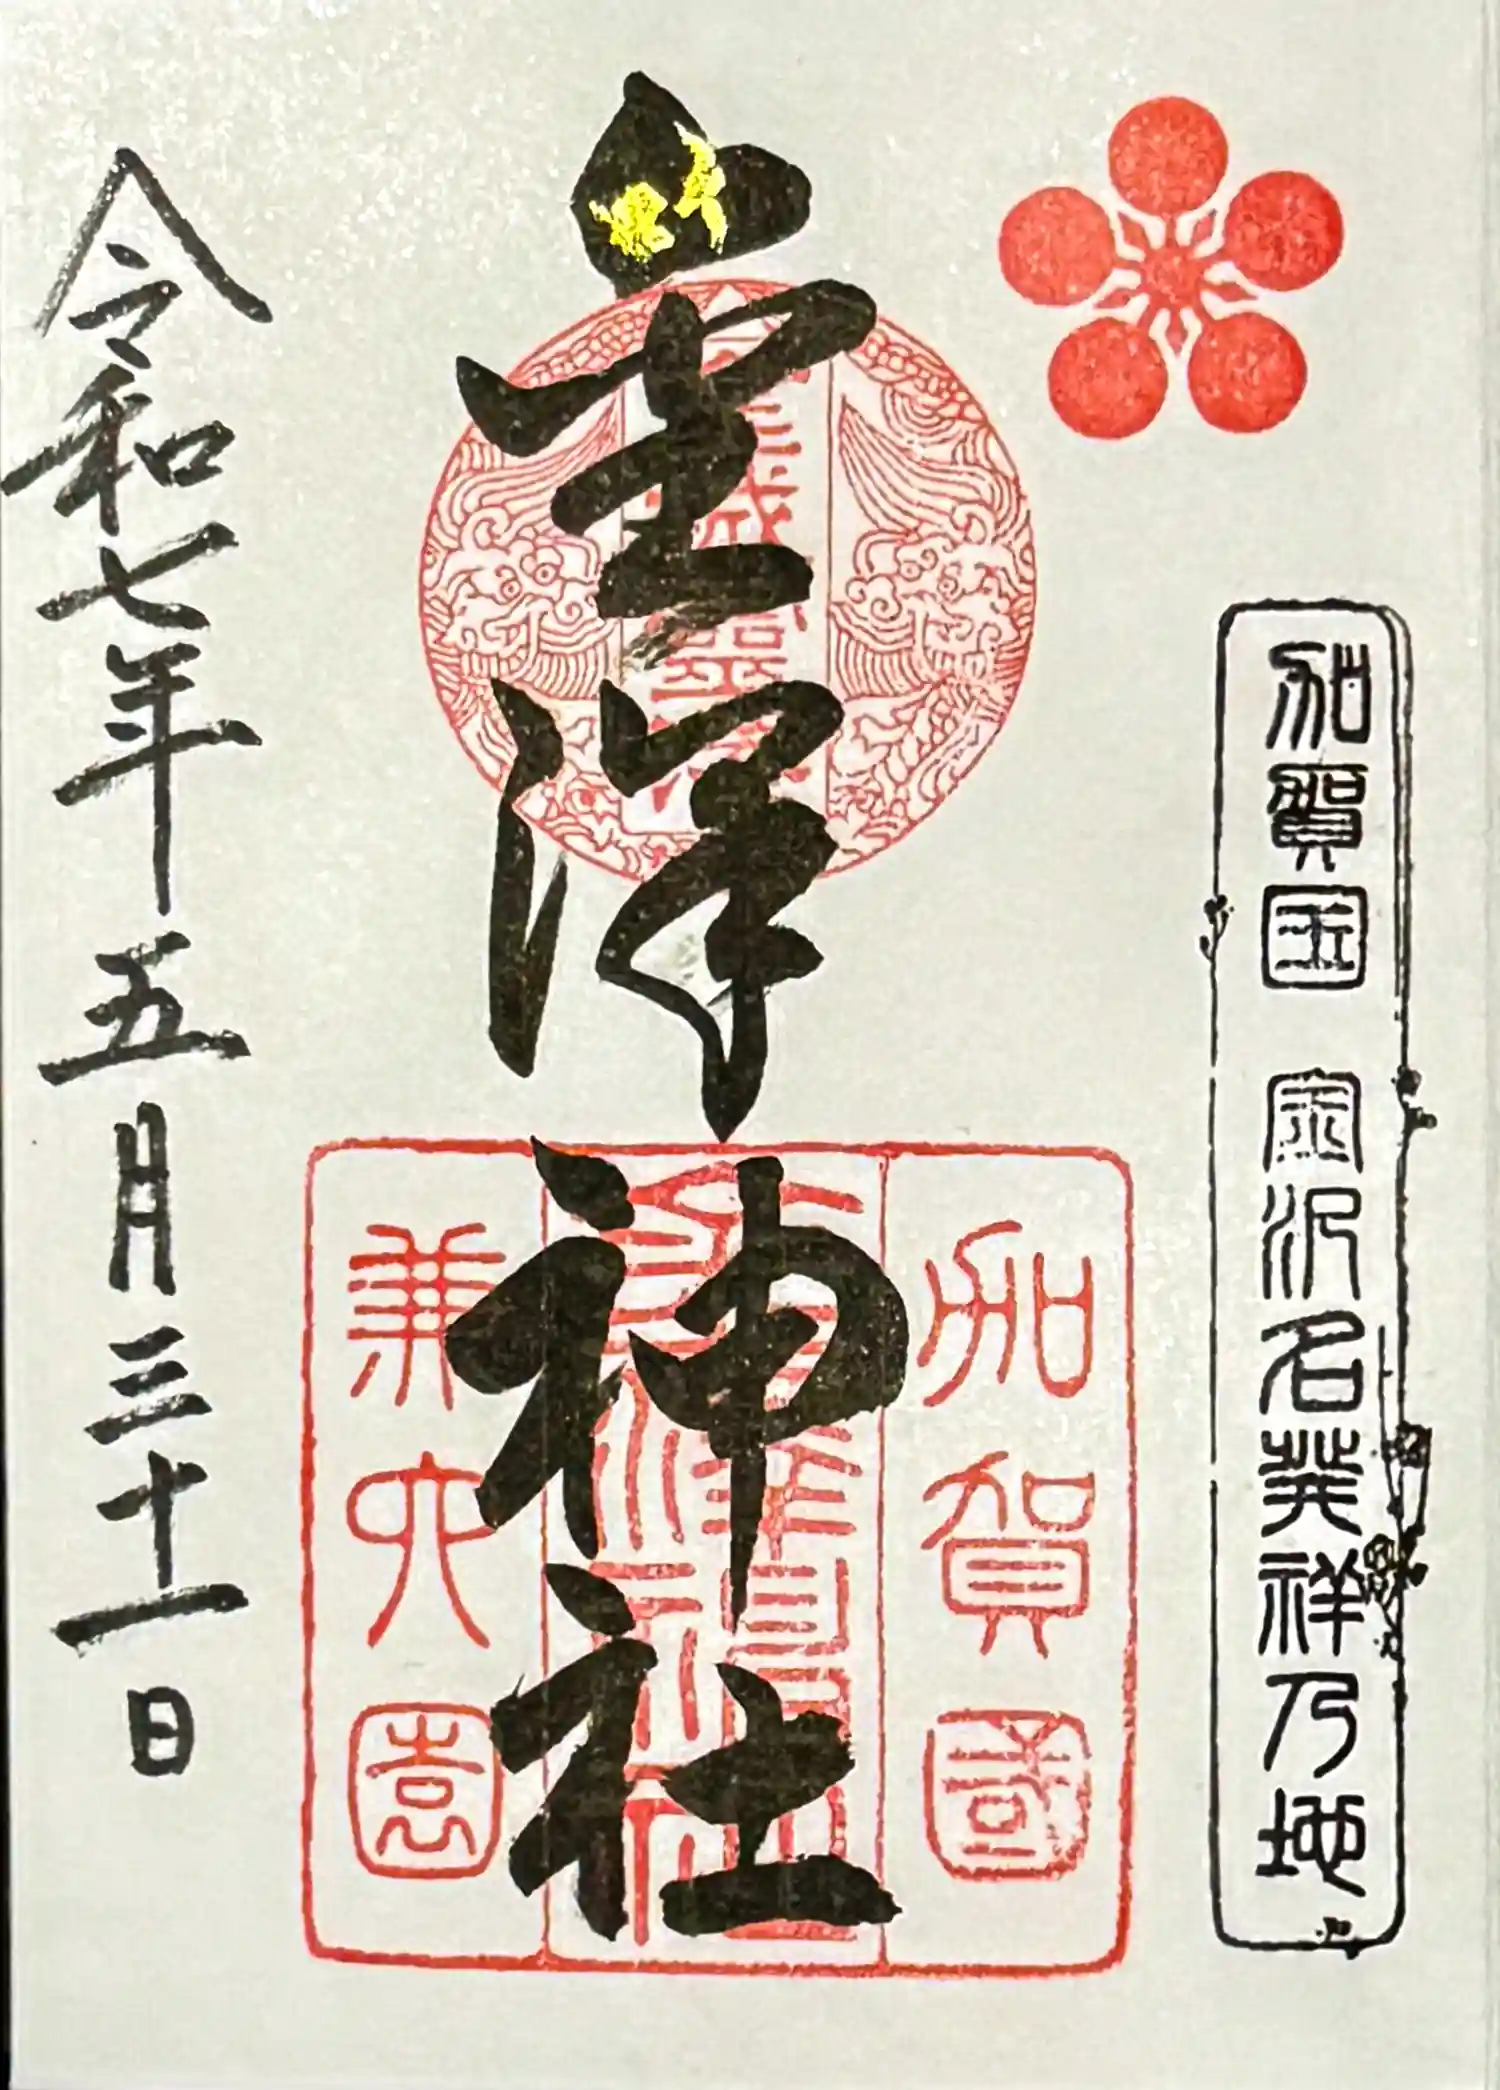 加賀国 金沢名発祥乃地
加賀國
金澤神社
兼六園
令和七年五月三十一日